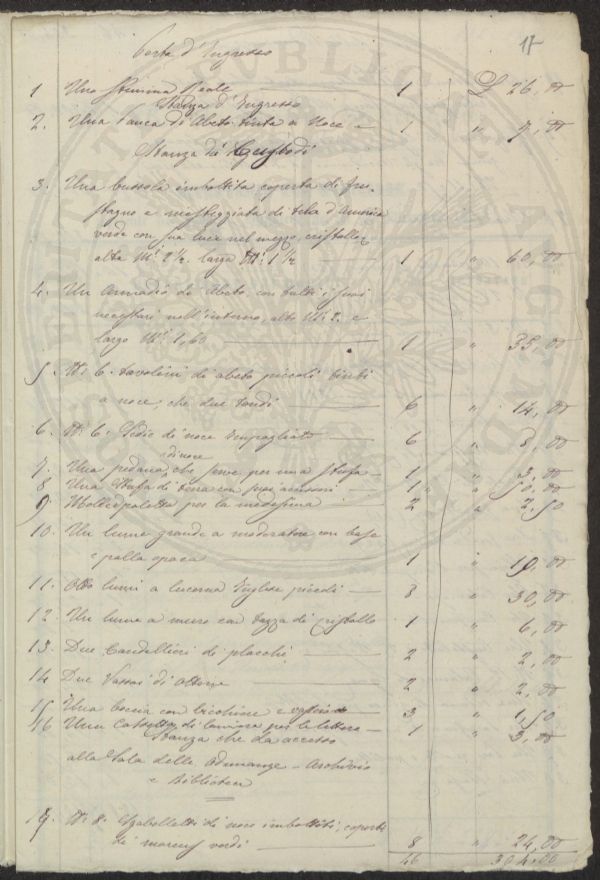 17
Porta d'Ingresso
1. Uno Stemma Reale 1 £ 26,00
Stanza d'Ingresso
2. Una Panca di Abeto tinta a Noce 1 " 7,00
Stanza di Custodi
3. Una bussola imbottita coperta di fru-
stagno e di tela d'America
verde con sua luce nel mezzo, cristallo,
alta Mt 2½ larga Mt 1½ 1 " 60,00
4. Un Armadio di Abeto con tutti i suoi
necessari nell'interno, alto Mt 2. e
largo Mt 1,60 1 " 35,00
5. N. 6. tavolini di abeto piccoli tinti
a noce, che due tondi 6 " 14,00
6. N. 6. Sedie di noce Impagliate 6 " 8,00
di noce
7. Una pedana, che serve per una Stufa 1 " 3,00
8 Una Stufa di terra con suoi accessori 1 " 50,00
9 Molle e paletta per la medesima 2 " 2.50
10. Un lume grande a moderatore con base
e palla opaca 1 " 10,00
11. Otto lumi a lucerna Inglese piccoli 8 " 30,00
12. Un lume a muro con tazza di cristallo 1 " 6,00
13. Due Candellieri di plachè 2 " 2,00
14 Due Vassoi di Ottone 2 " 2,00
15 Una boccia con bicchiere e 3 " 1,50
16 Una Cassetta di lamiera per le lettere 1 " 3,00
Stanza che dà accesso
alla Sala delle Adunanze - Archivio
e Biblioteca
17. N. 8. Sgabelletti di noce imbottiti, coperti
di verdi 8 " 24,00
46 304,00